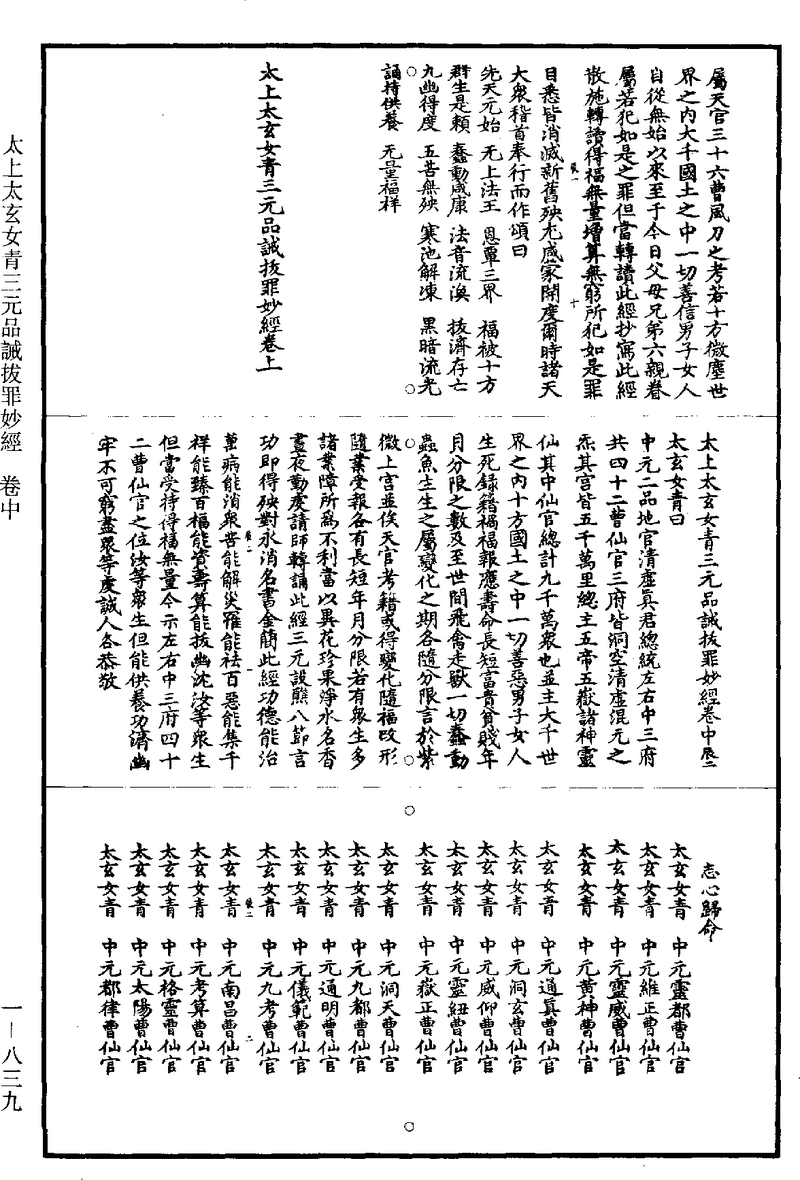 屬天官三十六曹風刀之考若十方微塵世
界之内大千國土之中一切善信男子女人
自從無始以來至于今日父母兄弟六親眷
屬若犯如是之罪但當轉讀此經抄寫此經
散施轉讀得福無量增算無窮所犯如是罪
目悉皆消滅新舊殃尤咸蒙開度爾時諸天
大衆稽首奉行而作頌曰
先天元始 无上法王 恩覃三界 福被十方
群生是賴 蠢動咸康 法音流渙 拔濟存亡
九幽得度 五苦無殃 寒池解凍 黑暗流光
誦持供養 无量福祥
太上太玄女青三元品誡拔罪妙經卷上
太上太玄女青三元品誡拔罪妙經卷中 辰二
太玄女青曰
中元二品地官清虛眞君總統左右中三府
共四十二曹仙官三府皆洞空清虛混元之
炁其宫皆五千萬里總主五帝五嶽諸神靈
仙其中仙官總計九千萬衆也並主大千世
界之内十方國土之中一切善惡男子女人
生死録籍禍福報應壽命長短富貴貧賤年
月分限之數及至世間飛禽走獸一切蠢動
蟲魚主生之屬變化之期各隨分限言於紫
微上宫並俟天官考籍或得變化隨福改形
隨業受報各有長短年月分限若有衆生多
諸業障所爲不利當以異花珍果淨水名香
晝夜勤虔請師轉誦此經三元設醮八節言
功即得殃對氷消名書金簡此經功德能治
萬病能消衆苦能解災羅能祛百惡能集千
祥能臻百福能資壽算能拔幽沈汝等衆生
但當受持得福無量今示左右中三府四十
二曹仙官之位汝等衆生但能供養功濟幽
牢不可窮盡衆等虔誠人各恭敬
志心歸命
太玄女青 中元靈都曹仙官
太玄女青 中元維正曹仙官
太玄女青 中元靈威曹仙官
太玄女青 中元黄神曹仙官
太玄女青 中元通眞曹仙官
太玄女青 中元洞玄曹仙官
太玄女青 中元威仰曹仙官
太玄女青 中元靈紐曹仙官
太玄女青 中元嶽正曹仙官
太玄女青 中元洞天曹仙官
太玄女青 中元九都曹仙官
太玄女青 中元通明曹仙官
太玄女青 中元儀範曹仙官
太玄女青 中元九考曹仙官
太玄女青 中元南昌曹仙官
太玄女青 中元考算曹仙官
太玄女青 中元格靈曹仙官
太玄女青 中元太陽曹仙官
太玄女青 中元都律曹仙官
太上太玄女青三元品誡拔罪妙經 卷中
一—八三九